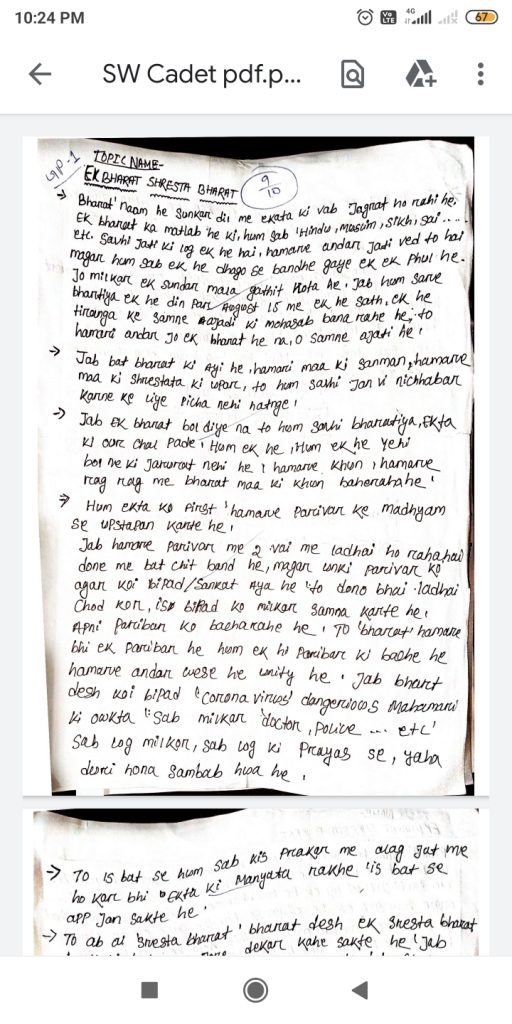 10:24 PM 4G 67
Vo LTE
SW Cadet pdf.p...
GP-1
TOPIC NAME-
EK BHARAT SHRESTA BHARAT
9/10
→ Bharat' Naam he Sunkar dil me ekata ki vab Jagrat ho rahi he.
EK bharat ka matlab he ki, hum sab 'Hindu, Musim, Sikh, sai ....
etc. Savhi Jati ki log ek he hai, hamare andar Jati ved to hai
magar hum sab ek he dhago se bandhe gaye ek ek phul he.
Jo milkar ek sundar mala gathit hota he. Jab hum sarve
bhartiya ek he din par August 15 me ek he sath, ek he
tiranga ke samne aajadi ki mohasab bana rahe he, to
hamari andar jo ek bharat he na, o samne ajati he।
→ Jab bat bharat ki Ayi he, hamari maa ki sanman, hamarve
maa ki Shrestata ki upar, to hum savhi Jan vi nichhabar
karne ke liye picha nehi hatnge।
→ Jab EK bharat bol diye na to hum savhi bharatiya, Ekta
ki our chal pade। Hum ek he, Hum ek he yehi
bol ne ki jarurat nehi he। hamarve khun। hamarve
rag rag me bharat maa ki khun baherahahe।
→ Hum ekta ko first 'hamarve parivar ke madhyam
se upstapan karte he।
Jab hamare parivar me 2 vai me ladhai ho rahahai
done me bat chit band he, magar unki parivar ko
agar koi bipad/Sankat Aya he to dono bhai ladhai
chod kor, iso bipad ko milkar samna karte he।
Apni pariban ko bacharahe he। TO 'bharat' hamare
bhi ek pariban he hum ek hi paribar ki bache he
hamarve andar wese he unity he। Jab bhart
desh koi bipad "Corona virus) dangerious Mahamari
ki owkta "Sab milkar doctor, police ... etc'
Sab log milkor, sab log ki prayas se, yaha
hona sambab hua he।
→ To is bat se hum sab kis prakar me alag Jat me
ho kar bhi Ekta ki Manyata rakhe 'is bat se
app Jan sakte he'
→ To ab al Sresta bharat ' bharat desh ek Sresta bharat
dekar kahe sakte he 'Jab